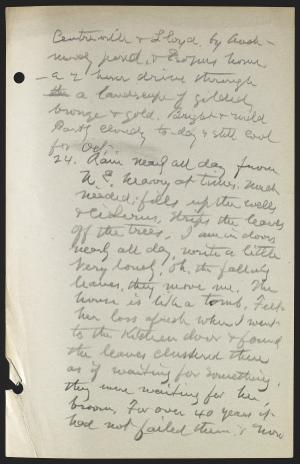 Centreville & Lloyd, by Auch-
moody pond, & Esopus home
— a 2 hour drive through
a landscape of gilded
bronze & gold. Bright & mild
Partly cloudy to-day & still cool
for Oct.
24. Rain nearly all day from
N. E. heavy at times. Much
needed; fills up the wells
& cisterns, strips the leaves
off the trees. I am in doors
nearly all day, write a little
Very lonely. Oh, the falling
leaves, they move me. The
house is like a tomb. Felt
her loss afresh when I went
to the kitchen door & found
the leaves clustered there
as if waiting for something,
they were waiting for her
broom. For over 40 years it
had not failed them, & now